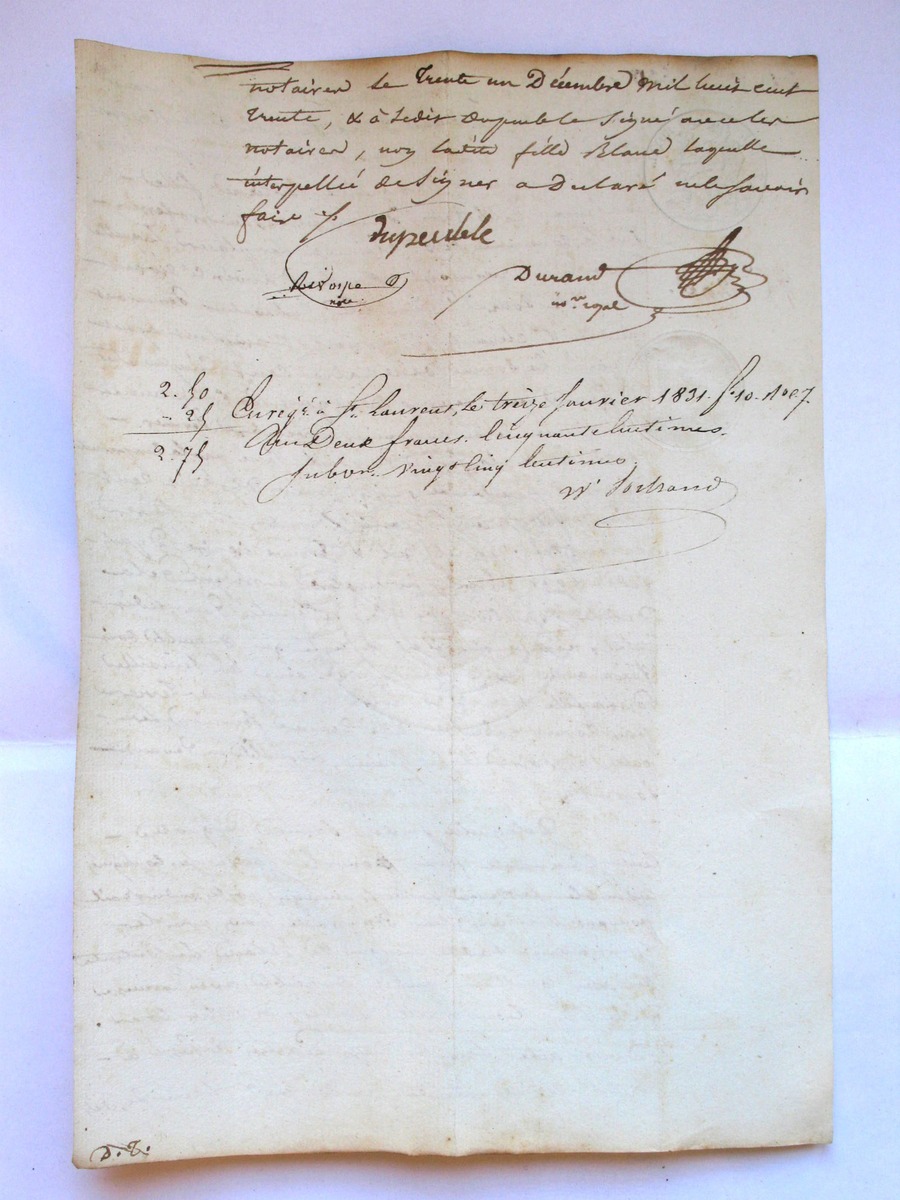 notaires le trente un Décembre mil huit cent
trente, & à ledit dupeuble signé avec les
notaires, non ladite fille Blanc laquelle
interpellée de signer a déclaré ne le savoir
faire
dupeuble
nore
Durand
nore royal
2. 50
- 25
2. 75
Enregé à St. Laurent, le treize Janvier 1831. fo 10. Ro C 7.
Reçu Deux francs Cinquante Centimes.
Subvon. Vingt Cinq Centimes.
D. T.